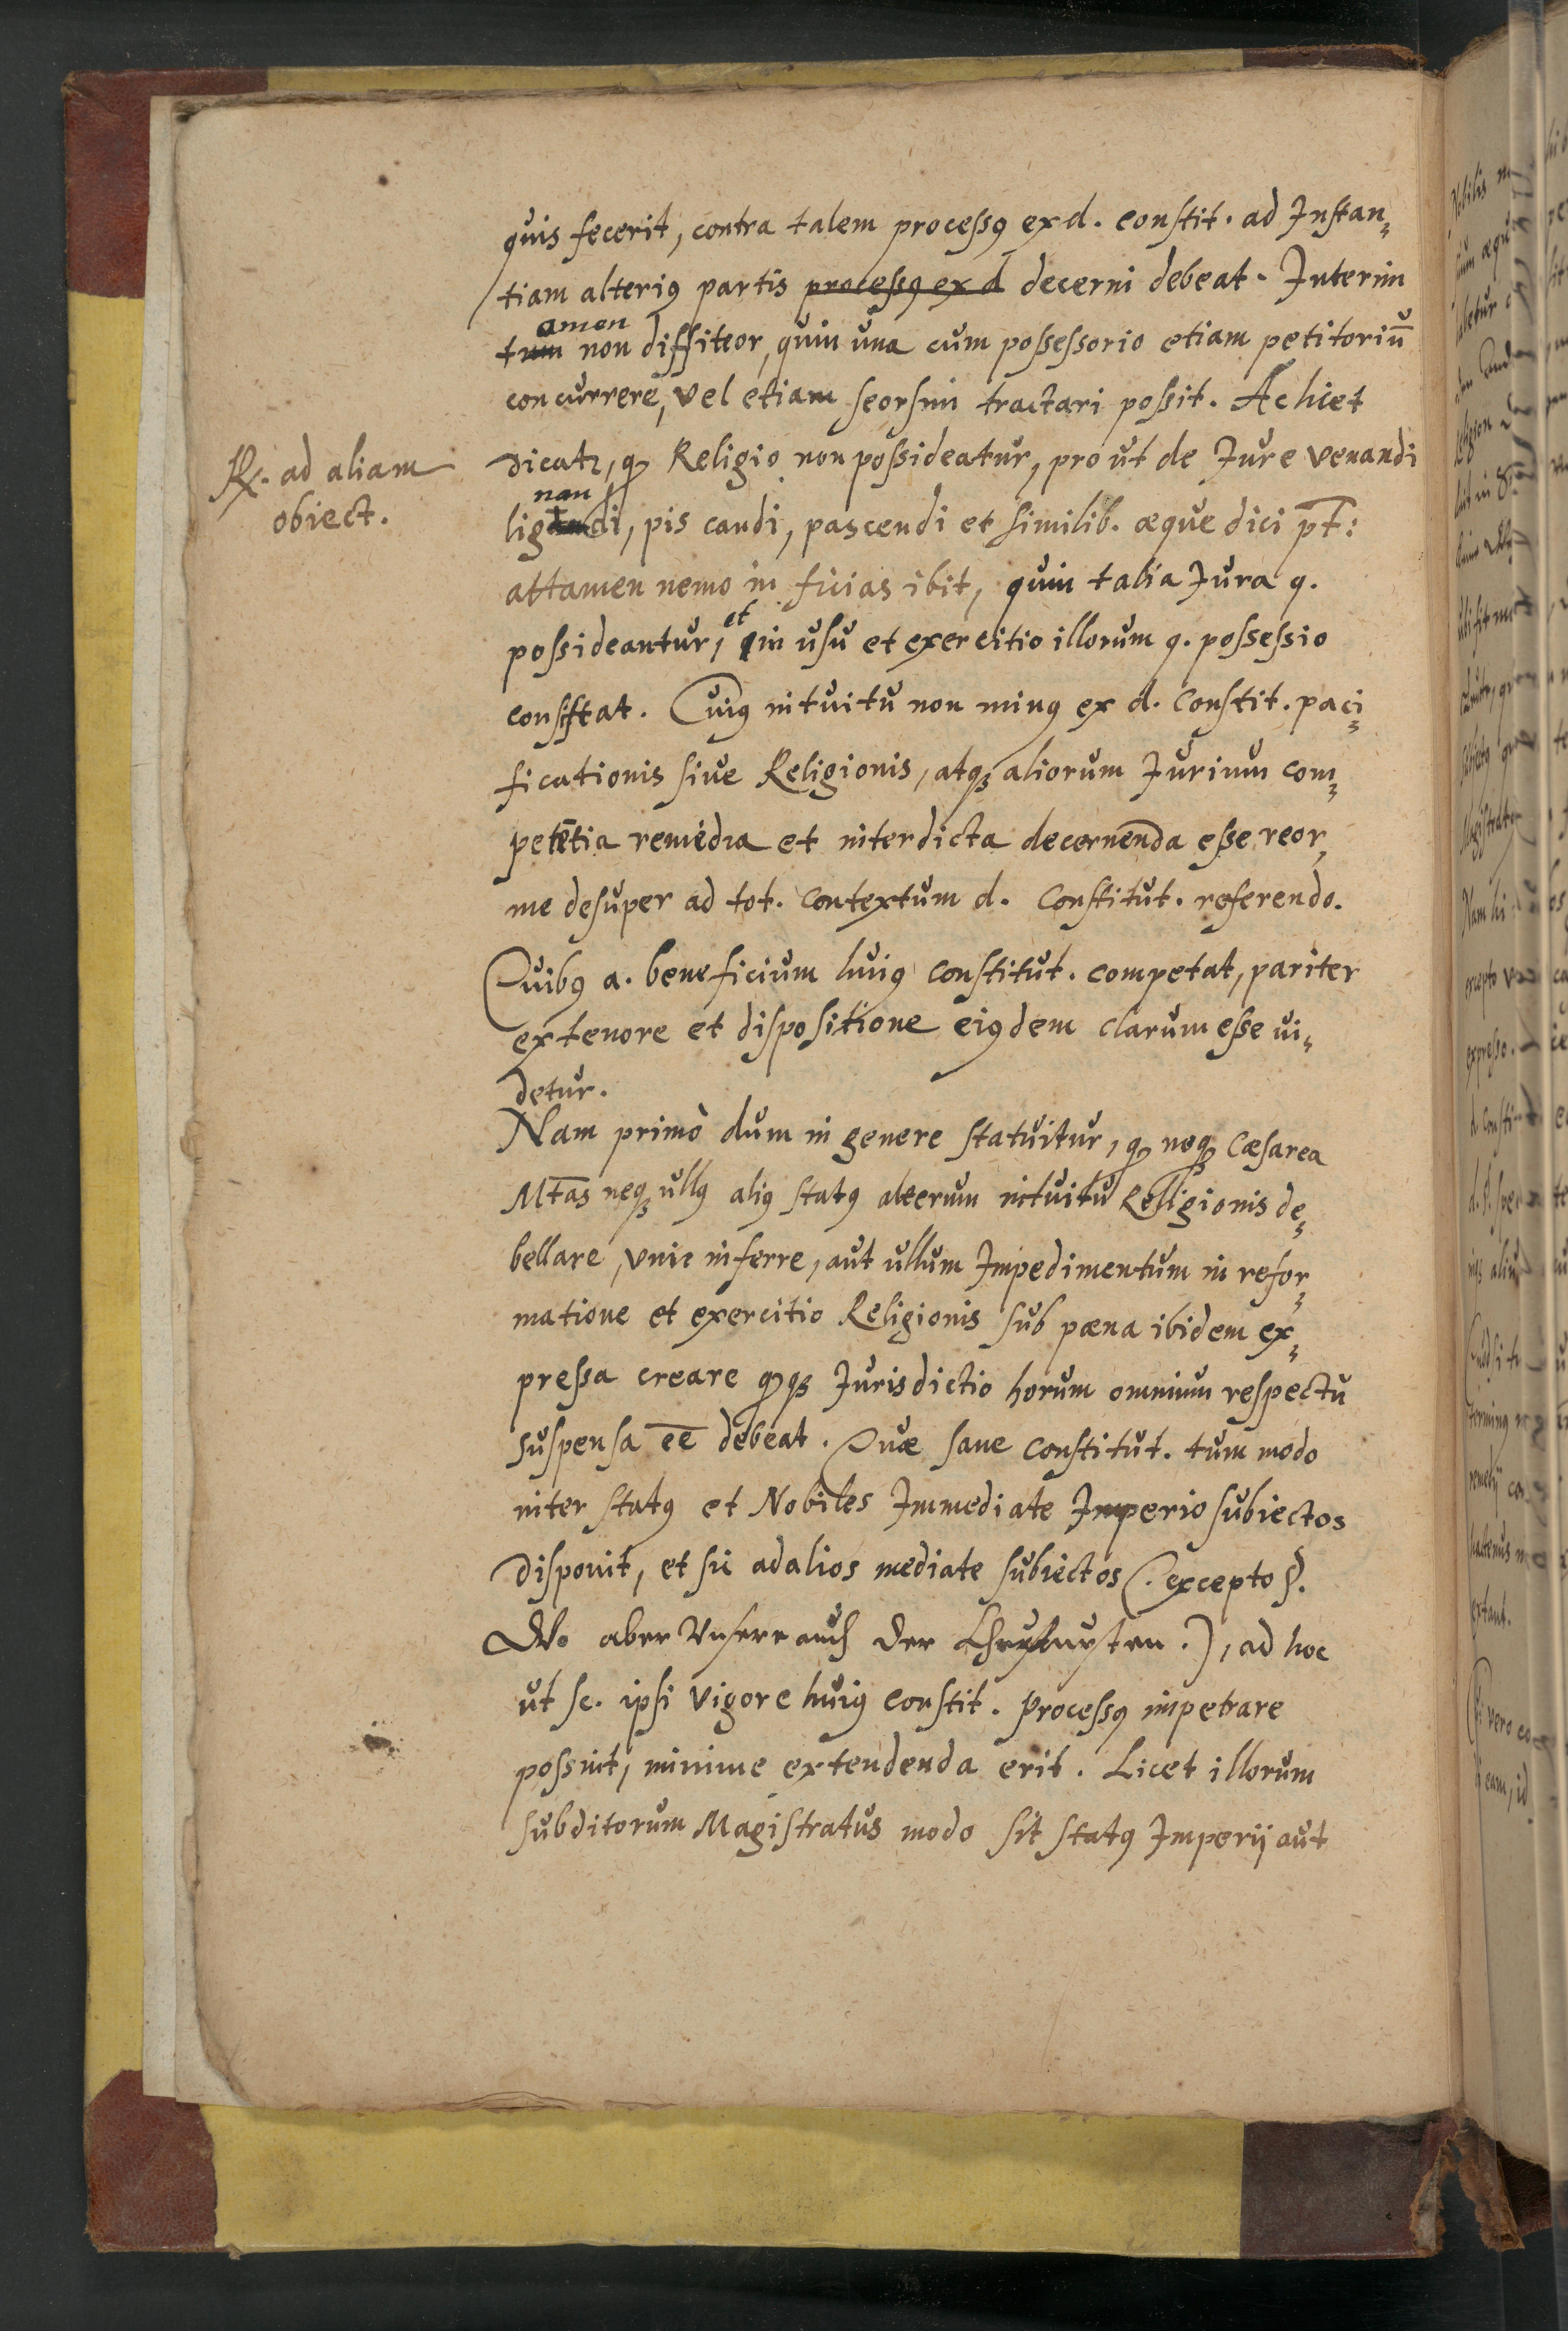 quis fecerit, contra talem processꝰ ex d. constit. ad Instan-
tiam alteriꝰ partis processꝰ ex d decerni debeat. Interim
amen
tum non diffiteor, quin una cum possessorio etiam petitoriū
concurrere, vel etiam seorsim tractari possit. Ac licet
R. ad aliam
obiect.
dicatꝛ, ꝙ Religio non possideatur, prout de Iure venandi
nan
ligandi, piscandi, pascendi et similib. æque dici pt̄:
attamen nemo in ficias ibit, quin talia Iura q.
et
possideantur, in usu et exercitio illorum q. possessio
consistat. Cuiꝰ intuitu non minꝰ ex d. Constit. paci-
ficationis sive Religionis, atqꝫ aliorum Iurium com-
petētia remedia et interdicta decernenda esse reor,
me desuper ad tot. contextum d. Constitut. referendo.
Quibꝰ a. beneficium huiꝰ Constitut. competat, pariter
ex tenore et dispositione eiꝰdem clarum esse vi-
detur.
Nam primò dum in genere statuitur, ꝙ neqꝫ Cæsarea
Mtas neqꝫ ullꝰ aliꝰ statꝰ alterum intuitu Religionis de-
bellare, vnie inferre, aut ullum Impedimentum in refor-
matione et exercitio Religionis sub pæna ibidem ex-
pressa creare ꝙqꝫ Iurisdictio horum omnium respectu
suspensa eē debeat. Quæ sane Constitut. tum modo
inter statꝰ et Nobiles Immediate Imperio subiectos
disponit, et sic ad alios mediate subiectos (. excepto §.
Wo aber Vnsere auch der .), ad hoc
ut sc. ipsi vigore huiꝰ constit. processꝰ impetrare
possint, minime extendenda erit. Licet illorum
subditorum Magistratus modo sit statꝰ Imperij aut